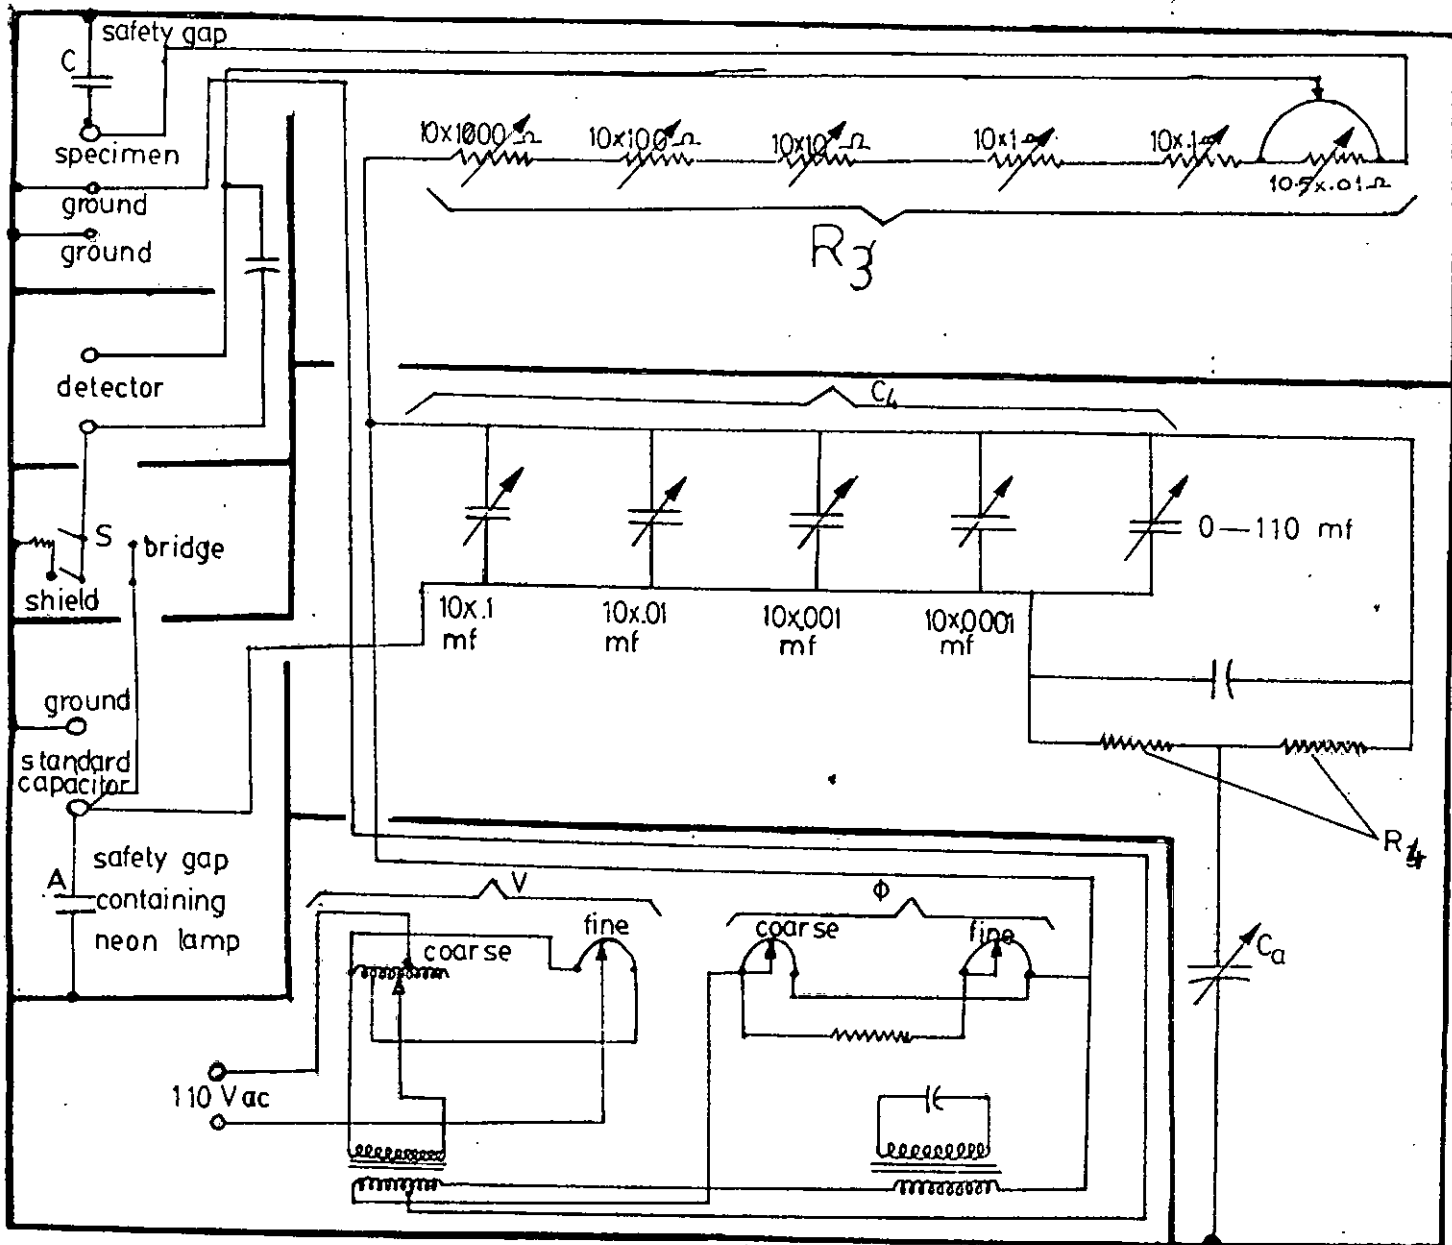 safety gap
C
specimen
ground
ground
detector
S
bridge
shield
ground
standard
capacitor
A
safety gap
containing
neon lamp
10x1000 Ω
10x100 Ω
10x10 Ω
10x1 Ω
10x.1 Ω
10.5x.01 Ω
R3
C4
0—110 mf
10x.1
mf
10x.01
mf
10x.001
mf
10x.0001
mf
R4
Ca
V
coarse
fine
ϕ
coarse
fine
110 Vac